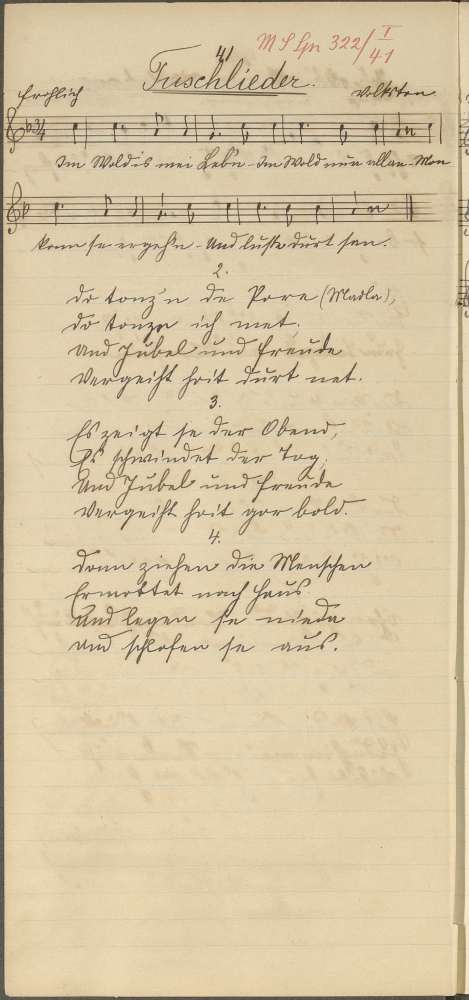 41
MS Lpr 322/I
41
Tuschlieder.
Fröhlich
Volkston
3/4
Im Wold is mei Lebn - Im Wold nun allan - Mon
konn se ergehn - Und luste durt sen.
2.
Do tonz'n de Pore (Madla),
do tonzn ich met,
und Jubel und Freude
Vergeiht heit durt net.
3.
Es zeigt se der Obend,
Es schwindet der Tog,
Und Jubel und Freude
Vergeiht heit gor bold.
4.
Donn ziehen die Menschen
Ermottet noch Haus.
Und legen se nieda
und schlofen se aus.